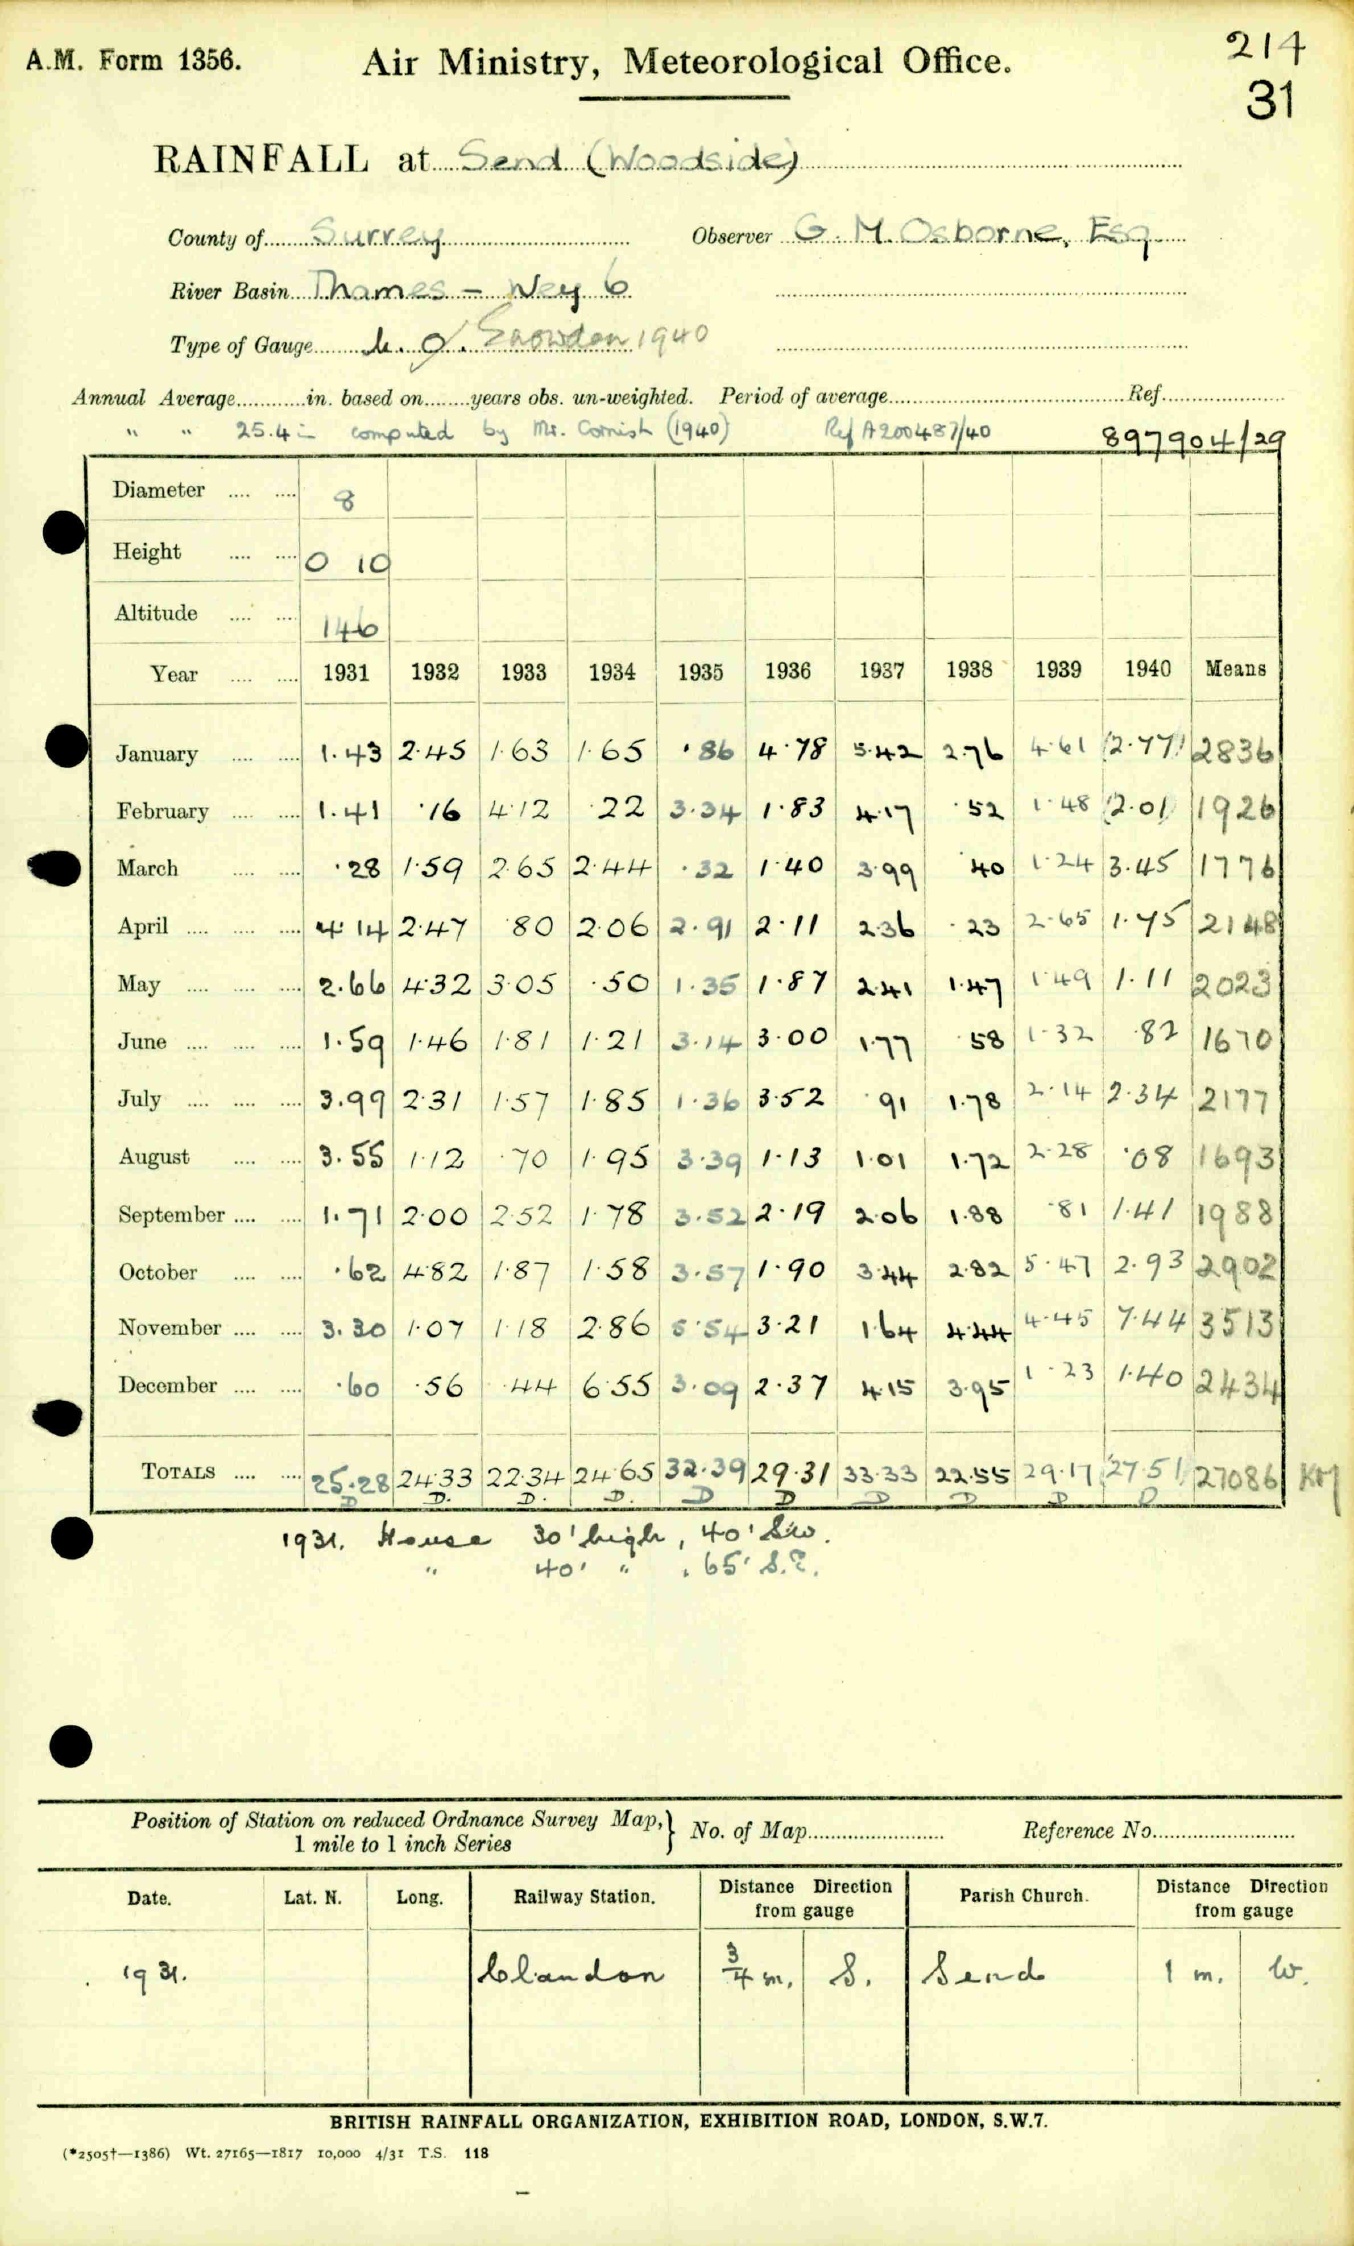 A.M. Form 1356. Air Ministry, Meteorological Office. 214
31
RAINFALL at Send (Woodside)
County of Surrey Observer G. M. Osborne, Esq.
River Basin Thames - Wey 6
Type of Gauge M. O. Snowdon 1940
Annual Average in. based on years obs. un-weighted. Period of average Ref.
" " 25.4 in computed by Mr. Cornish (1940) Ref A200487/40 897904/29
Diameter 8
Height 0 10
Altitude 146
Year 1931 1932 1933 1934 1935 1936 1937 1938 1939 1940 Means
January 1.43 2.45 1.63 1.65 .86 4.78 5.42 2.76 4.61 (2.77) 2836
February 1.41 .16 4.12 .22 3.34 1.83 4.17 .52 1.48 (2.01) 1926
March .28 1.59 2.65 2.44 .32 1.40 3.99 .40 1.24 3.45 1776
April 4.14 2.47 .80 2.06 2.91 2.11 2.36 .23 2.65 1.75 2148
May 2.66 4.32 3.05 .50 1.35 1.87 2.41 1.47 1.49 1.11 2023
June 1.59 1.46 1.81 1.21 3.14 3.00 1.77 .58 1.32 .82 1670
July 3.99 2.31 1.57 1.85 1.36 3.52 .91 1.78 2.14 2.34 2177
August 3.55 1.12 .70 1.95 3.39 1.13 1.01 1.72 2.28 .08 1693
September 1.71 2.00 2.52 1.78 3.52 2.19 2.06 1.88 .81 1.41 1988
October .62 4.82 1.87 1.58 3.57 1.90 3.44 2.82 5.47 2.93 2902
November 3.30 1.07 1.18 2.86 5.54 3.21 1.64 4.44 4.45 7.44 3513
December .60 .56 .44 6.55 3.09 2.37 4.15 3.95 1.23 1.40 2434
TOTALS 25.28 24.33 22.34 24.65 32.39 29.31 33.33 22.55 29.17 (27.51) 27086 KM
D D. D. D. D D D D D D
1931. House 30' high, 40' SW.
" 40' " , 65' S.E.
Position of Station on reduced Ordnance Survey Map,} No. of Map Reference No.
1 mile to 1 inch Series
Date. Lat. N. Long. Railway Station. Distance Direction from gauge Parish Church. Distance Direction from gauge
1931. Clandon 3/4 m. S. Send 1 m. W.
BRITISH RAINFALL ORGANIZATION, EXHIBITION ROAD, LONDON, S.W.7.
(*2505†—1386) Wt. 27165—1817 10,000 4/31 T.S. 118